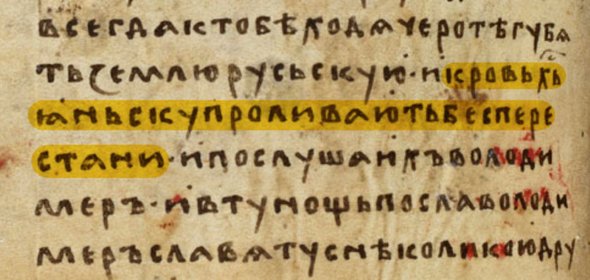 всегдактобѣходѧчеротѣгубѧ
тьземлюрусьскую·икровьхь
ꙗньскупроливаютьбеспере
стани·ипослушаихъволоди
меръ·ивтуношьпославолоди
меръславѧтуснѣколикоюдру